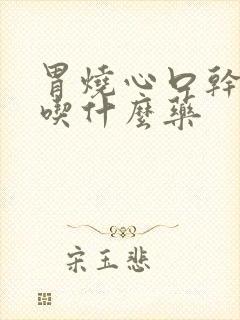 胃燒心口幹
喫什麼藥
宋玉悲